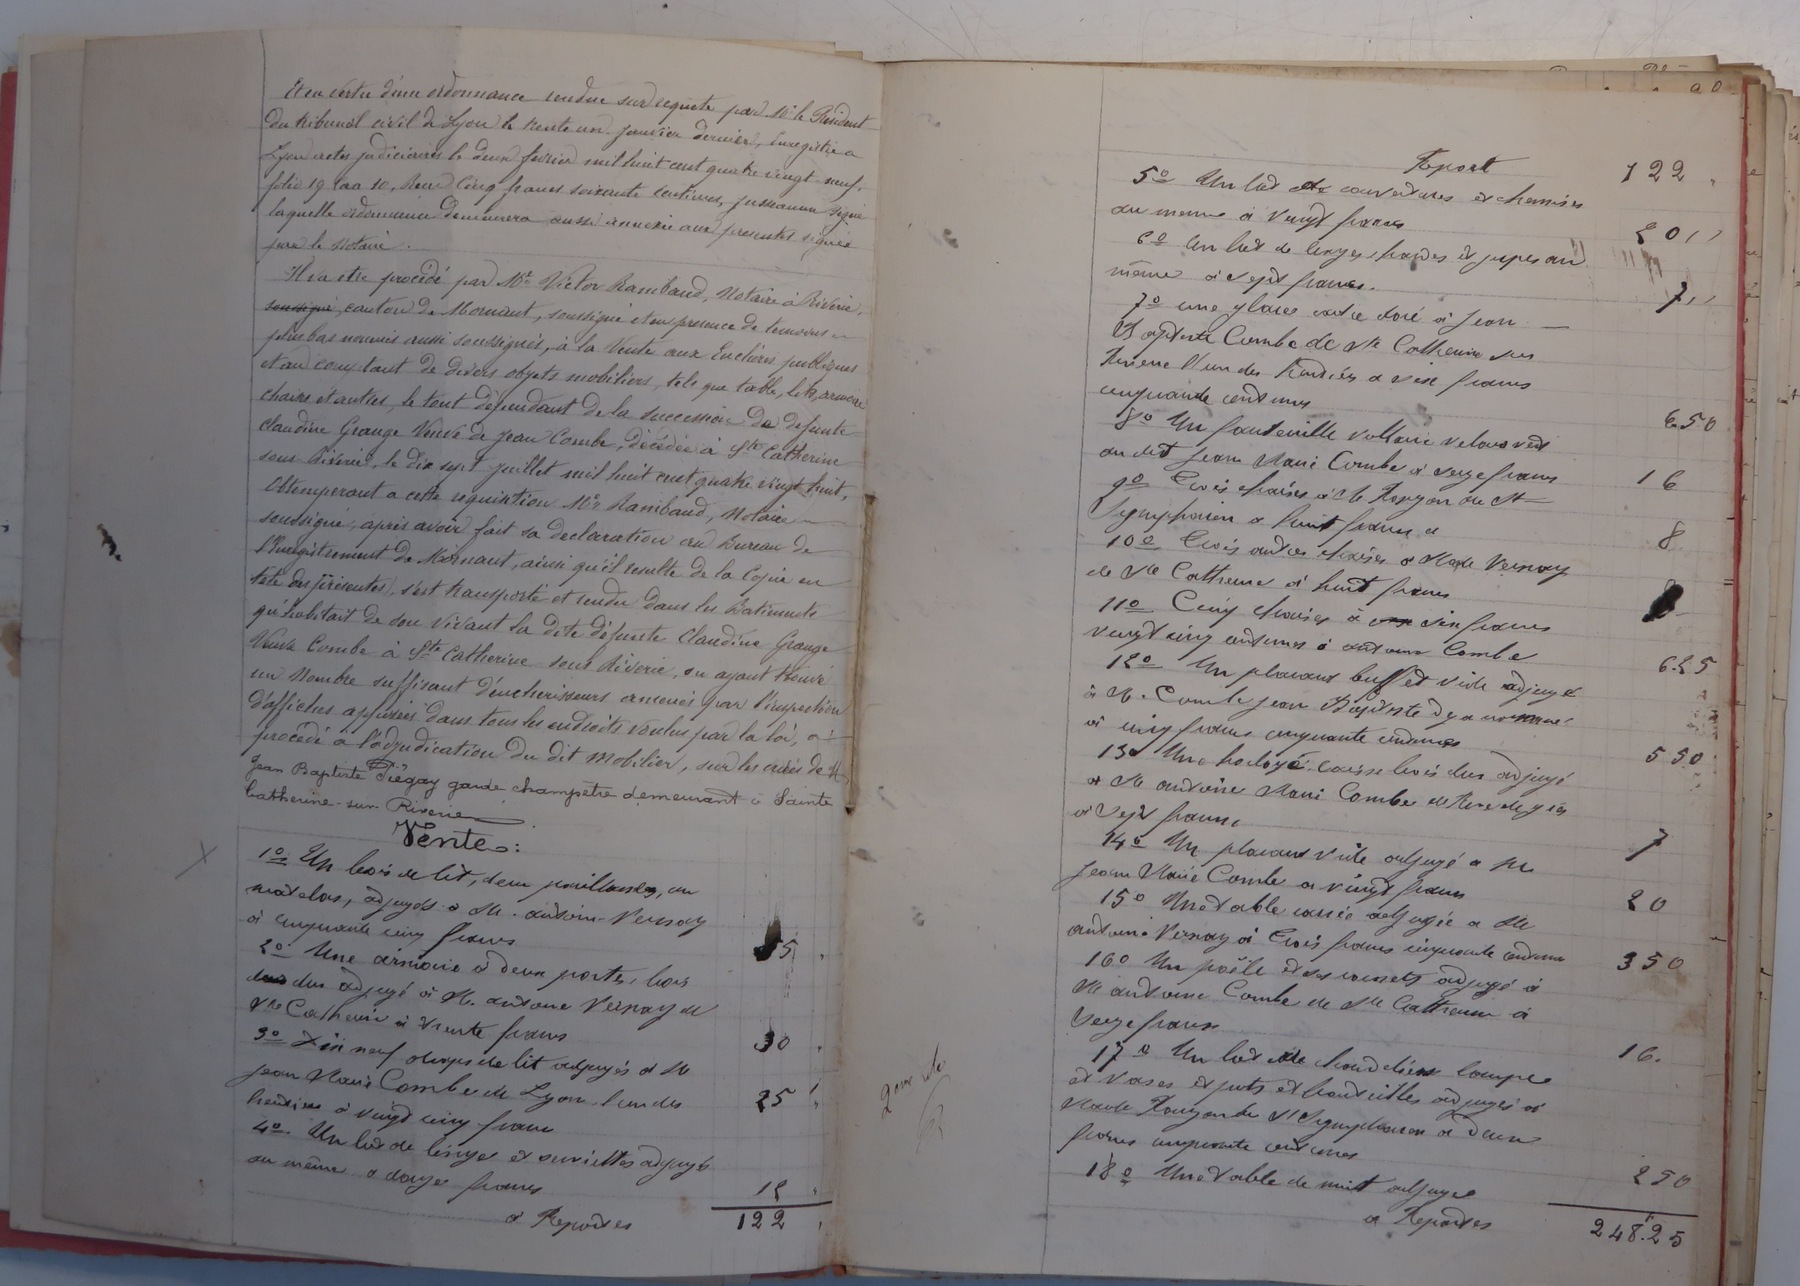 Et en vertu d'une ordonnance rendue sur requête par Mr le Président
du tribunal civil de Lyon le trente un janvier dernier, enregistrée a
Lyon actes judiciaires le deux février mil huit cent quatre vingt neuf,
folio 19 Case 10, Reçu Cinq francs soixante centimes, signé
laquelle ordonnance demeurera aussi annexée aux présentes signée
par le Notaire.
Il va etre procédé par Me Victor Rambaud, Notaire à Riverie,
soussigné canton de Mornant, soussigné et en presence de temoins
plus bas nommés aussi soussignés, à la Vente aux Enchères publiques
et au comptant de divers objets mobiliers, tels que table, lits, armoire
chaises et autres, le tout dépendant de la succession de defunte
Claudine Grange Veuve de Jean Combe, décédée à Ste Catherine
sous Riverie, le dix sept juillet mil huit cent quatre vingt huit,
Obtemperant a cette requisition Me Rambaud, Notaire
soussigné, après avoir fait sa declaration au Bureau de
l'Enregistrement de Mornant, ainsi qu'il resulte de la Copie en
tete des présentes, s'est transporté et rendu dans les Batiments
qu'habitait de son vivant la dite défunte Claudine Grange
Veuve Combe à Ste Catherine sous Riverie, ou ayant trouvé
un Nombre suffisant d'encherisseurs amenés par l'inspection
d'affiches apposées dans tous les endroits voulus par la loi, a
procédé a l'adjudication du dit Mobilier, sur les criées de M
Jean Baptiste Piégay garde champêtre demeurant à Sainte
Catherine-sur-Riverie
Vente:
1o Un bois de lit, deux paillasses, un
matelas, adjugés à M. Antoine Vernay
à cinquante cinq francs 55
2o Une armoire à deux portes, bois
dur adjugé à M. Antoine Vernay de
Ste Catherine à trente francs 30
3o Dix neuf draps de lit adjugés à M
Jean Marie Combe de Lyon l'un des
heritiers à vingt cinq francs 25
4o Un lot de linges et serviettes adjugés
au même a douze francs 12
à Reporter 122
Report 122
5o Un lot de couvertures et chemises
au meme à vingt francs 20
6o Un lot de linges hardes et jupes au
même à sept francs. 7
7o une glace cadre doré à Jean
Baptiste Combe de Ste Catherine sus
l'un des héritiers a six francs
cinquante centimes 6.50
8o Un fauteuille voltaire velours vert
au dit Jean Marie Combe à seize francs 16
9o Trois chaises à de St
Symphorien a huit francs 8
10o Trois autres chaises a Made Vernay
de Ste Catherine à huit francs 8
11o Cinq chaises à six francs
vingt cinq centimes à Antoine Combe 6.25
12o Un placard buffet vide adjugé
à M. Combe Jean Baptiste déja nommé
à cinq francs cinquante centimes 5 50
13o Une horloge caisse bois dur adjugé
à M Antoine Marie Combe
à sept francs 7
14o Un placard vide adjugé a M
Jean Marie Combe a vingt francs 20
15o Une table carrée adjugée a M
Antoine Vernay à trois francs cinquante centimes 3 50
16o Un poële et ses cornets adjugé à
M Antoine Combe de Ste Catherine à
seize francs 16.
17o Un lot de chandeliers lampe
et vases et pots et bouteilles adjugés à
Made St Symphorien a deux
francs cinquante centimes 2 50
18o Une table de nuit adjugée
a Reporter 248.25